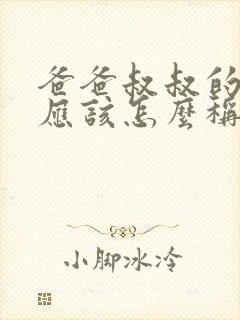 爸爸叔叔的
應該怎麼稱
小脚冰冷